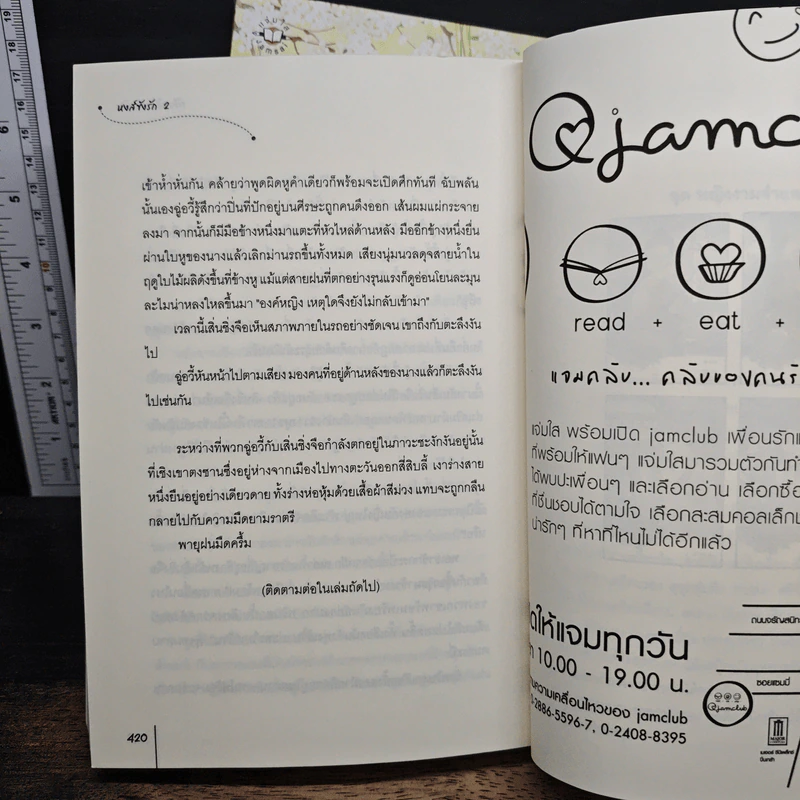 หงส์ขังรัก 2
เข้าห้ำหั่นกัน คล้ายว่าพูดผิดหูคำเดียวก็พร้อมจะเปิดศึกทันที ฉับพลัน
นั้นเองฉู่อวี้รู้สึกว่าปิ่นที่ปักอยู่บนศีรษะถูกคนดึงออก เส้นผมแผ่กระจาย
ลงมา จากนั้นก็มีมือข้างหนึ่งมาแตะที่หัวไหล่ด้านหลัง มืออีกข้างหนึ่งยื่น
ผ่านใบหูของนางแล้วเลิกม่านรถขึ้นทั้งหมด เสียงนุ่มนวลดุจสายน้ำใน
ฤดูใบไม้ผลิดังขึ้นที่ข้างหู แม้แต่สายฝนที่ตกอย่างรุนแรงก็ดูอ่อนโยนละมุน
ละไมน่าหลงใหลขึ้นมา "องค์หญิง เหตุใดจึงยังไม่กลับเข้ามา"
เวลานี้เสิ่นชิ่งจือเห็นสภาพภายในรถอย่างชัดเจน เขาถึงกับตะลึงงัน
ไป
ฉู่อวี้หันหน้าไปตามเสียง มองคนที่อยู่ด้านหลังของนางแล้วก็ตะลึงงัน
ไปเช่นกัน
ระหว่างที่พวกฉู่อวี้กับเสิ่นชิ่งจือกำลังตกอยู่ในภาวะชะงักงันอยู่นั้น
ที่เชิงเขาตงซานซึ่งอยู่ห่างจากเมืองไปทางตะวันออกสี่สิบลี้ เงาร่างสาย
หนึ่งยืนอยู่อย่างเดียวดาย ทั้งร่างห่อหุ้มด้วยเสื้อผ้าสีม่วง แทบจะถูกกลืน
กลายไปกับความมืดยามราตรี
พายุฝนมืดครึ้ม
(ติดตามต่อในเล่มถัดไป)
420
jamc
read + eat +
แจมคลับ... คลับของคนรั
แจ่มใส พร้อมเปิด jamclub เพื่อนรักแ
ที่พร้อมให้แฟนๆ แจ่มใสมารวมตัวกันทำ
ได้พบปะเพื่อนๆ และเลือกอ่าน เลือกซื้อ
ที่ชื่นชอบได้ตามใจ เลือกสะสมคอลเล็กเ
น่ารักๆ ที่หาที่ไหนไม่ได้อีกแล้ว
ดให้แจมทุกวัน
10.00 - 19.00 น.
ความเคลื่อนไหวของ jamclub
2886-5596-7, 0-2408-8395
ถนนจรัญสนิท
ซอยแซมมี่
jamclub